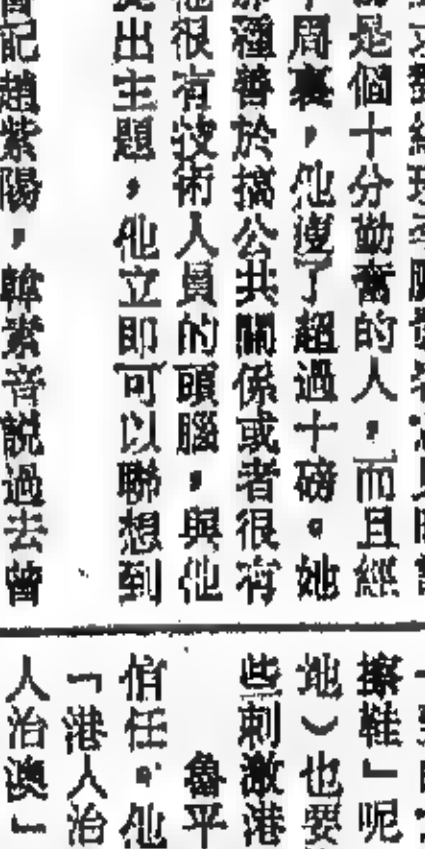 是個十分勤奮的人，而且經
周裏，他瘦了超過十磅。她
種善於搞公共關係或者很有
很有技術人員的頭腦，與他
出主題，他立即可以聯想到
記趙紫陽，韓素音說過去曾
擦鞋」呢
地）也要
些刺激港
魯平
信任。他
「港人治
人治澳」